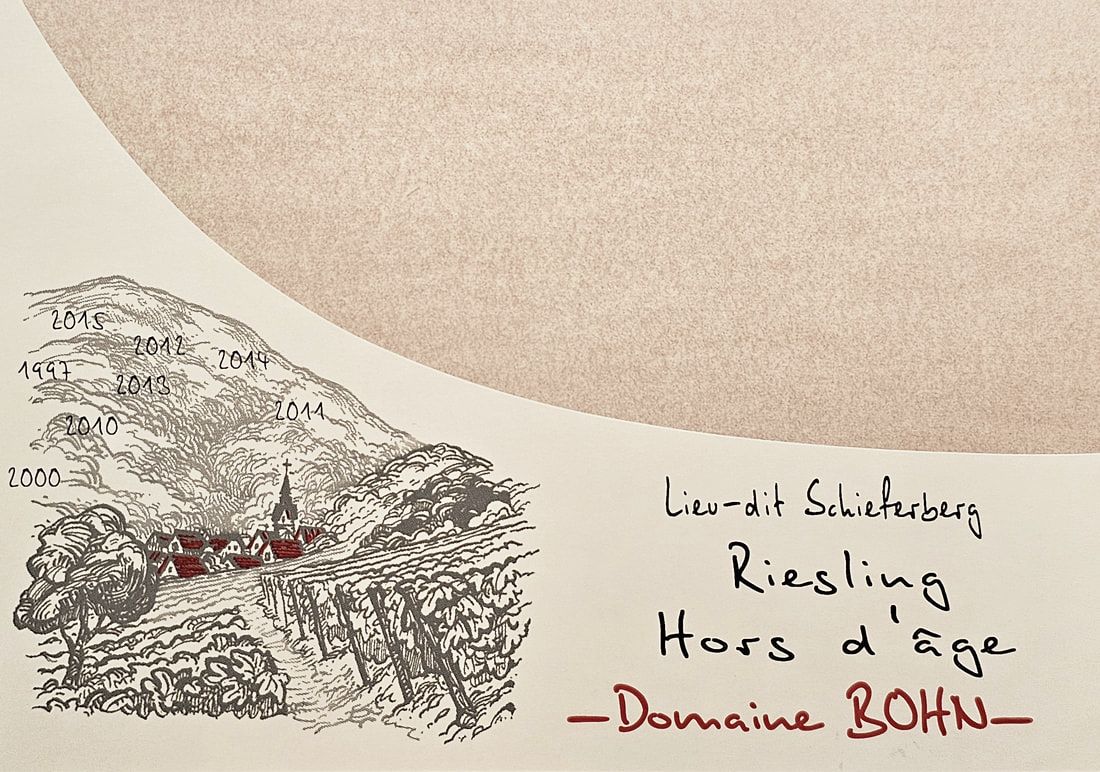 2015
2012
2014
1997
2013
2011
2010
2000
Lieu-dit Schieferberg
Riesling
Hors d'âge
—Domaine BOHN—